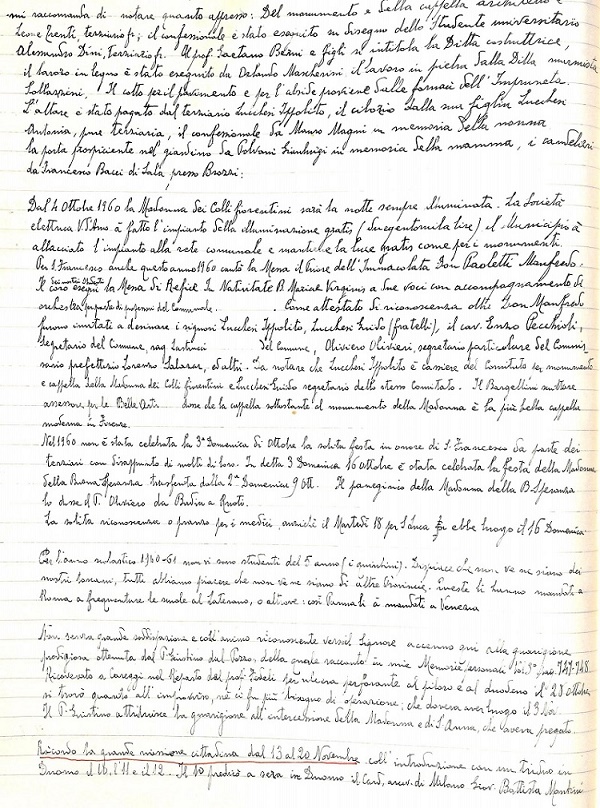 mi raccomanda di notare quanto appresso: Del monumento e della cappella architetto è
terziario fr; il confessionale è stato eseguito su disegno dello studente universitario
Alessandro Dini, terziario fr. Al prof Gaetano Berni e figli si intitola la Ditta costruttrice,
il lavoro in legno è stato eseguito da Orlando Mascherini, il lavoro in pietra dalla Ditta
Il cotto per il pavimento e per l'abside proviene dalle fornaci dell'Impruneta.
L'altare è stato pagato dal terziario Luccheri Ippolito, il ciborio dalla sua figlia Luccheri
Antonia, pure terziaria, il confessionale da Mauro Magni in memoria della nonna
la porta prospiciente nel giardino da Polvani Gianluigi in memoria della mamma, i candelieri
da Francesco Bacci di Lala, presso Brozzi:
Dal 4 Ottobre 1960 la Madonna dei Colli fiorentini sarà la notte sempre illuminata. La Società
elettrica Valdarno à fatto l'impianto della illuminazione gratis (duegentomila lire) il Municipio à
allacciato l'impianto alla rete comunale e mantiene la luce gratis come per i monumenti.
Per S. Francesco anche questo anno 1960 cantò la Messa il Priore dell'Immacolata Don Paoletti Manfredo.
Il coro eseguì la Messa di Refice In Nativitate B. Mariae Virginis a due voci con accompagnamento di
orchestra preparata di professori del Comunale. Come attestato di riconoscenza oltre Don Manfredo
furono invitati a desinare i signori Luccheri Ippolito, Luccheri Guido (fratelli), il cav. Enzo Pecchioli,
segretario del Comune, rag. del Comune, Oliviero Olivieri, segretario particolare del Commis
sario prefettizio Lorenzo Salazar, ed altri. Da notare che Luccheri Ippolito è cassiere del Comitato per monumento
e cappella della Madonna dei Colli fiorentini e Luccheri Guido segretario dello stesso Comitato. Il Bargellini scrittore
assessore per le Belle Arti disse che la cappella sottostante al monumento della Madonna è la più bella cappella
moderna in Firenze.
Nel 1960 non è stata celebrata la 3ª Domenica di Ottobre la solita festa in onore di S. Francesco da parte dei
terziari con disappunto di molti di loro. In detta 3 Domenica 16 Ottobre è stata celebrata la festa della Madonna
della Buona Speranza trasferita dalla 2ª Domenica 9 Ott. Il panegirico della Madonna della B. Speranza
lo disse il P. Oliviero da Badia a Ruoti.
La solita riconoscenza o pranzo per i medici, anziché il Martedì 18 per S. Luca ebbe luogo il 16 Domenica.
Per l'anno scolastico 1960-61 non vi sono studenti del 5 anno (i quintini). Dispiace che non ve ne siano dei
nostri toscani, tutti abbiamo piacere che non ve ne siano di altre Provincie. Queste li hanno mandati a
Roma a frequentare le scuole al Laterano, o altrove: così Parma li à mandati a Venezia
Non senza grande soddisfazione e coll'animo riconoscente verso il Signore accenno qui alla guarigione
prodigiosa ottenuta dal P. Giustino dal Pozzo, della quale racconto in mie Memorie personali Vol. 3° pag. 747-748
Ricoverato a Careggi nel Reparto del prof. Fedeli per ulcera perforante al piloro e al duodeno il 28 Ottobre
si trovò guarito all'improvviso, né ci fu più bisogno di operazione; che doveva aver luogo il 3 Nov.
Il P. Giustino attribuisce la guarigione all'intercessione della Madonna e di S. Anna, che aveva pregato.
Ricordo la grande missione cittadina dal 13 al 20 Novembre coll'introduzione con un triduo in
Duomo il 10, l'11 e il 12. Il 10 predicò a sera in Duomo il Card. arciv. di Milano Giov. Battista Montini